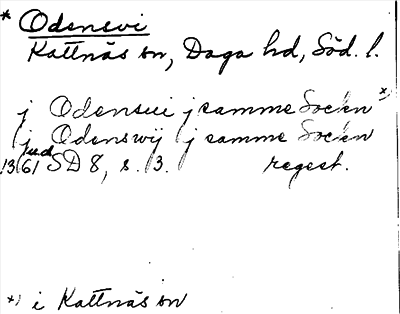 * Odensvi
Kattnäs sn, Daga hd, Söd. l.
j Odensui j samme Socken *)
j Odenswij j samme Socken
1361 SD 8, s. 3. regest.
*) i Kattnäs sn